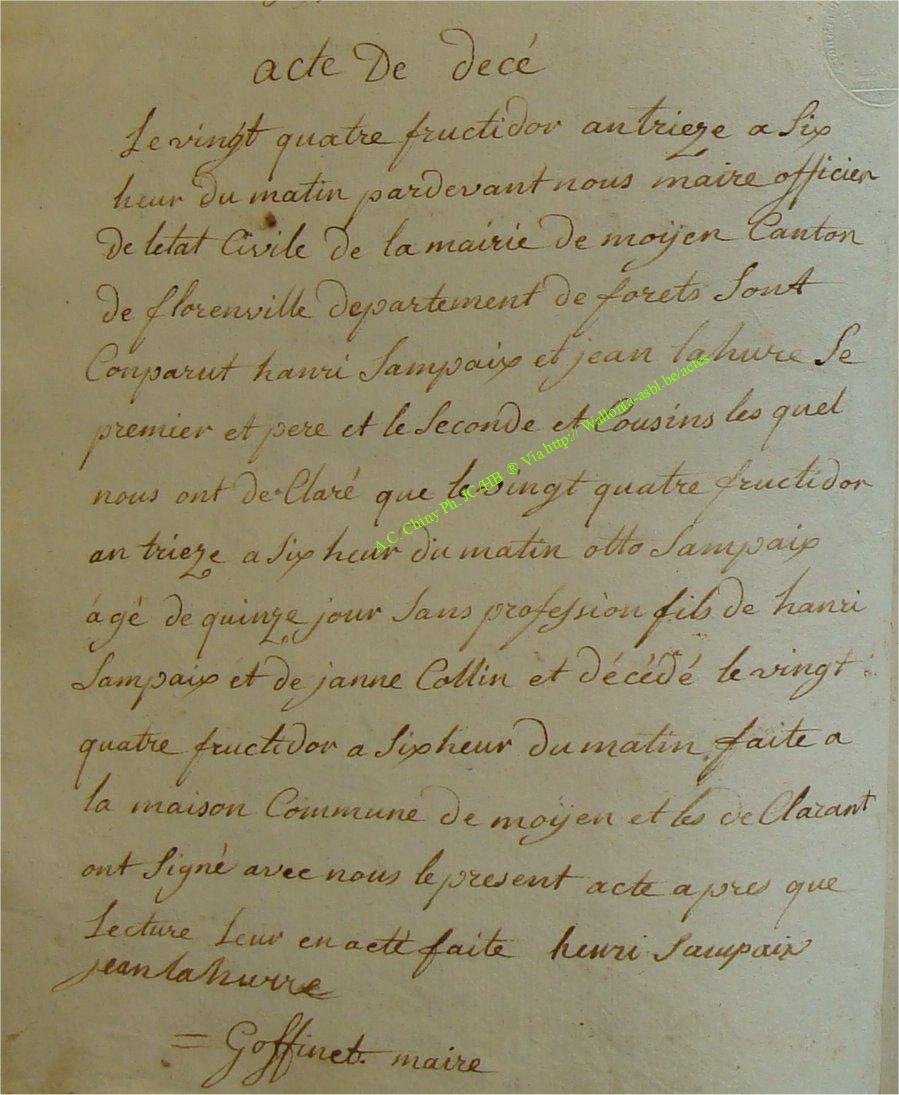 acte De decé
Le vingt quatre fructidor an trieze a Six
heur du matin pardevant nous maire officier
De letat Civile de la mairie de moÿen Canton
de florenville departement de forets Sont
Conparut hanri Sampaix et jean lahure Le
premier et pere et le Seconde et Cousins les quel
nous ont de Claré que le vingt quatre fructidor
an trieze a Six heur du matin otto Sampaix
âgé de quinze jour Sans profession fils de hanri
Sampaix et de janne Collin et décédé le vingt
quatre fructidor a Six heur du matin faite a
la maison Commune de moÿen et les de Clarant
ont Signé avec nous le present acte apres que
Lecture Leur en acté faite henri Sampaix
jean lahurre
= Goffinet. maire
A.C. Chiny Ph. JC-HB ® Via http:// Wallonia-asbl.be/actes